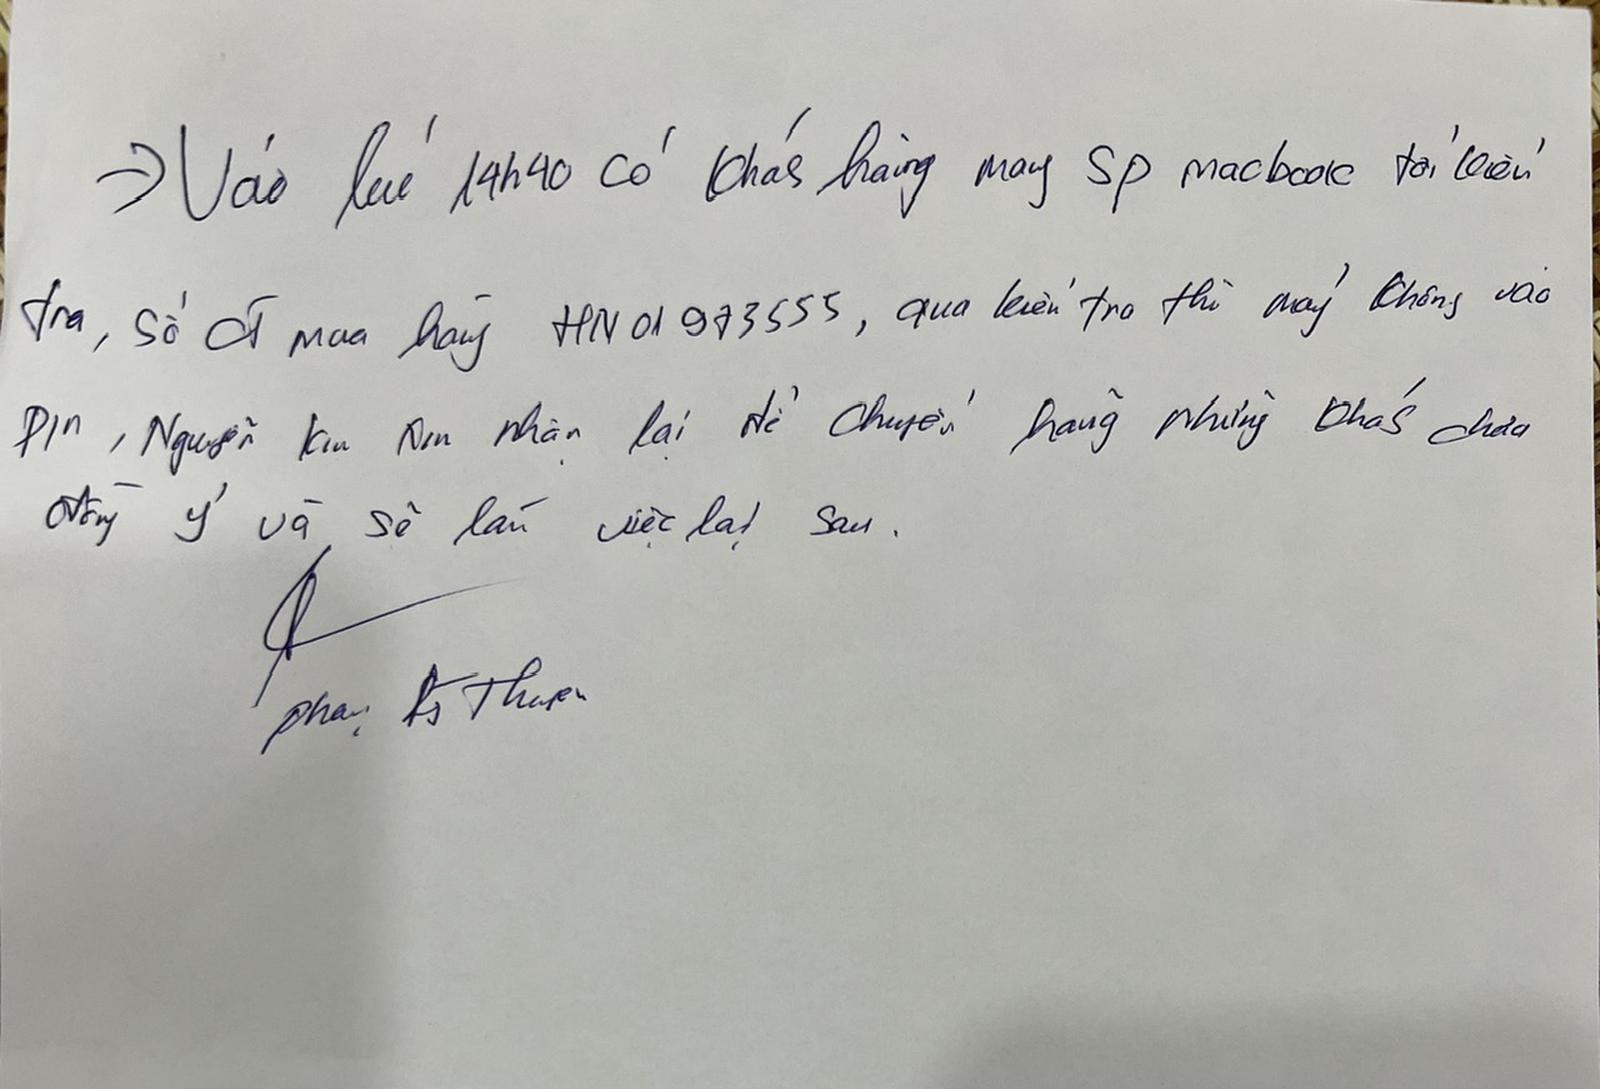 => Vào lúc 14h40 có khách hàng mang SP macbook tới kiểm
tra, số CT mua hàng HN01973555, qua kiểm tra thì máy không vào
pin, Nguyễn Kim xin nhận lại để chuyển hãng nhưng khách chưa
đồng ý và sẽ làm việc lại sau.
Phạm